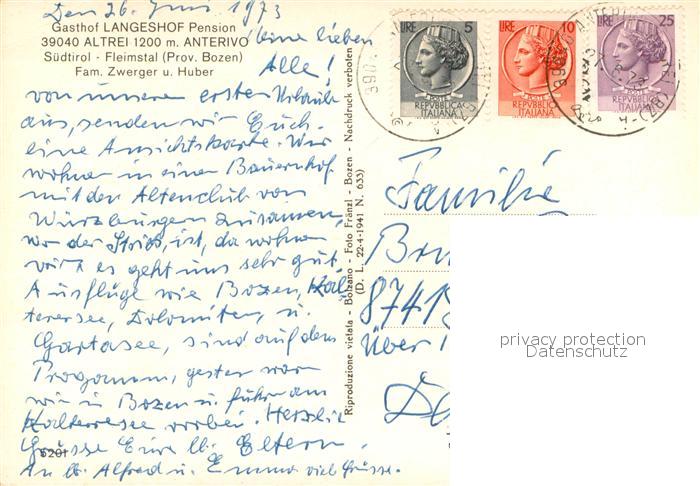 Den 26. Juni 1973
Gasthof LANGESHOF Pension
39040 ALTREI 1200 m. ANTERIVO
Südtirol - Fleimstal (Prov. Bozen)
Fam. Zwerger u. Huber
Meine lieben
Alle!
von unserem ersten Urlaub
aus, senden wir Euch
eine Ansichtskarte. Wir
wohnen in einen Bauernhof
mit den Altenclub von
Würzburgen zusammen,
wo der ist, da wohnen
wir es geht uns sehr gut.
Ausflüge wie Bozen, Kal
terersee, Dolomiten, u.
Gartasee, sind auf dem
Programm, gester waren
wir in Bozen u. fuhren am
Kalterersee vorbei. Herzlic
Grüsse Eure lb. Eltern.
An lb. Alfred u. Emma viel Grüsse.
5201
Riproduzione vietata - Bolzano - Foto Fränzl - Bozen - Nachdruck verboten
(D. L. 22-4-1941 N. 633)
LIRE 5
REPVBBLICA
ITALIANA
LIRE 10
REPVBBLICA
ITALIANA
LIRE 25
REPVBBLICA
ITALIANA
Familie
8741
Über
privacy protection
Datenschutz